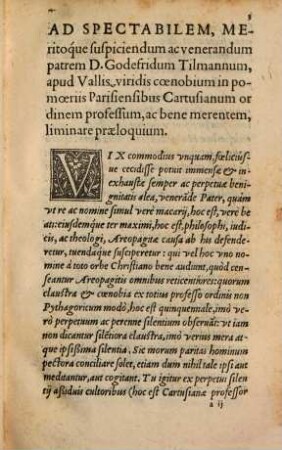 AD SPECTABILEM, ME-
ritoque suspiciendum ac venerandum
patrem D. Godefridum Tilmannum,
apud Vallis viridis cœnobium in po-
mœriis Parisiensibus Cartusianum or
dinem professum, ac bene merentem,
liminare præloquium.
VIX commodius vnquam, fœliciús-
ue cecidisse potuit immensæ & in-
exhaustæ semper ac perpetuæ beni-
gnitatis alea, venerāde Pater, quàm
vt re ac nomine simul verè macarij, hoc est, verè be
ati: eiusdemque ter maximi, hoc est, philosophi, iudi-
cis, ac theologi, Areopagitæ causa ab his defende-
retur, tuendáque susciperetur: qui vel hoc vno no-
mine à toto orbe Christiano bene audiunt, quòd cen-
seantur Areopagitis omnibus reticentiores: quorum
claustra & cœnobia ex totius professo ordinis non
Pythagoricum modò, hoc est quinquennale, imò ve-
rò perpetuum ac perenne silentium obseruāt: vt iam
non dicantur silētiora claustra, imò verius mera at-
que ipsissima silentia. Sic morum paritas hominum
pectora conciliare solet, etiam dum nihil tale ipsi aut
meditantur, aut cogitant. Tu igitur ex perpetui silen
tij assiduis cultoribus (hoc est Cartusianæ professor
a ij